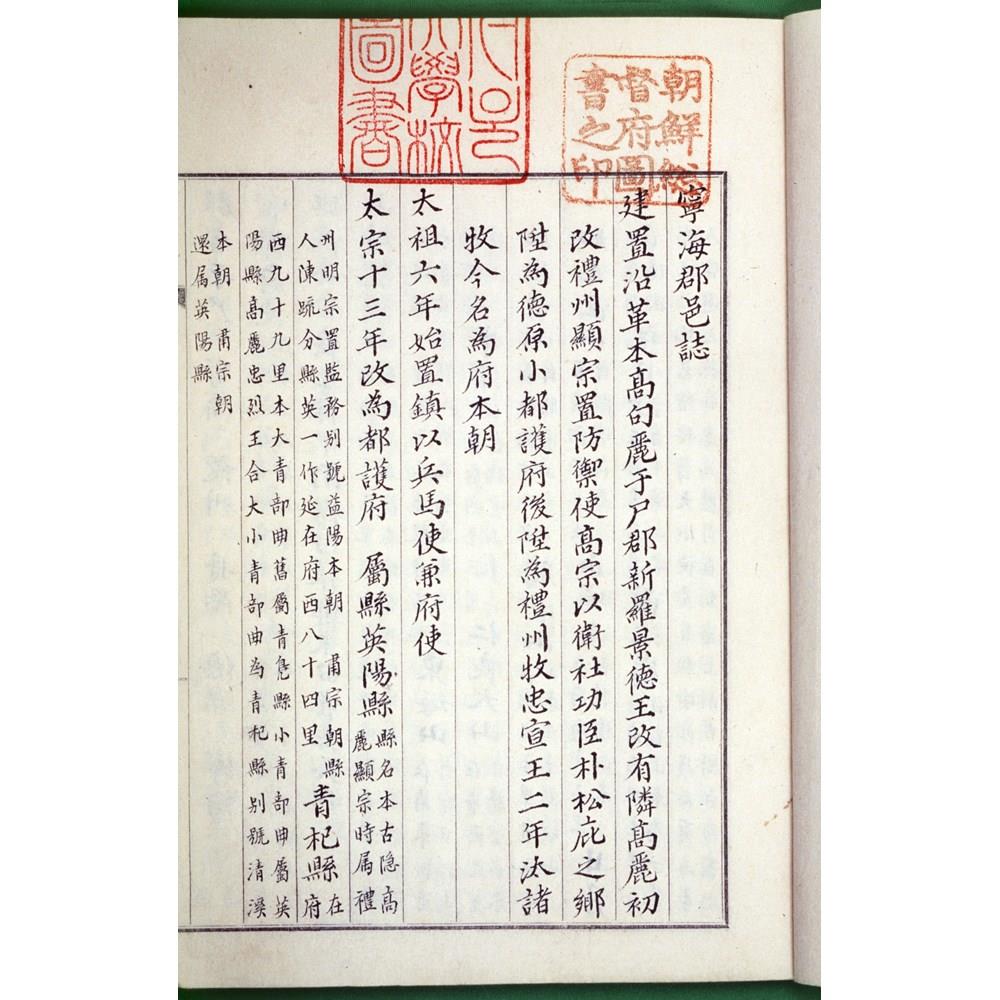 朝鮮總
督府圖
書之印
大學校
圖書
寧海郡邑誌
建置沿革本高句麗于尸郡新羅景德王改有隣高麗初
改禮州顯宗置防禦使高宗以衛社功臣朴松庇之鄉
陞為德原小都護府後陞為禮州牧忠宣王二年汰諸
牧今名為府本朝
太祖六年始置鎮以兵馬使兼府使
太宗十三年改為都護府 屬縣英陽縣
縣名本古隱高
麗顯宗時属禮
州明宗置監務別號益陽本朝 肅宗朝縣
人陳疏分縣英一作延在府西八十四里
青杞縣
在
府
西九十九里本大青部曲舊屬青鳧縣小青部曲屬英
陽縣高麗忠烈王合大小青部曲為青杞縣別號清溪
本朝 肅宗朝
還属英陽縣